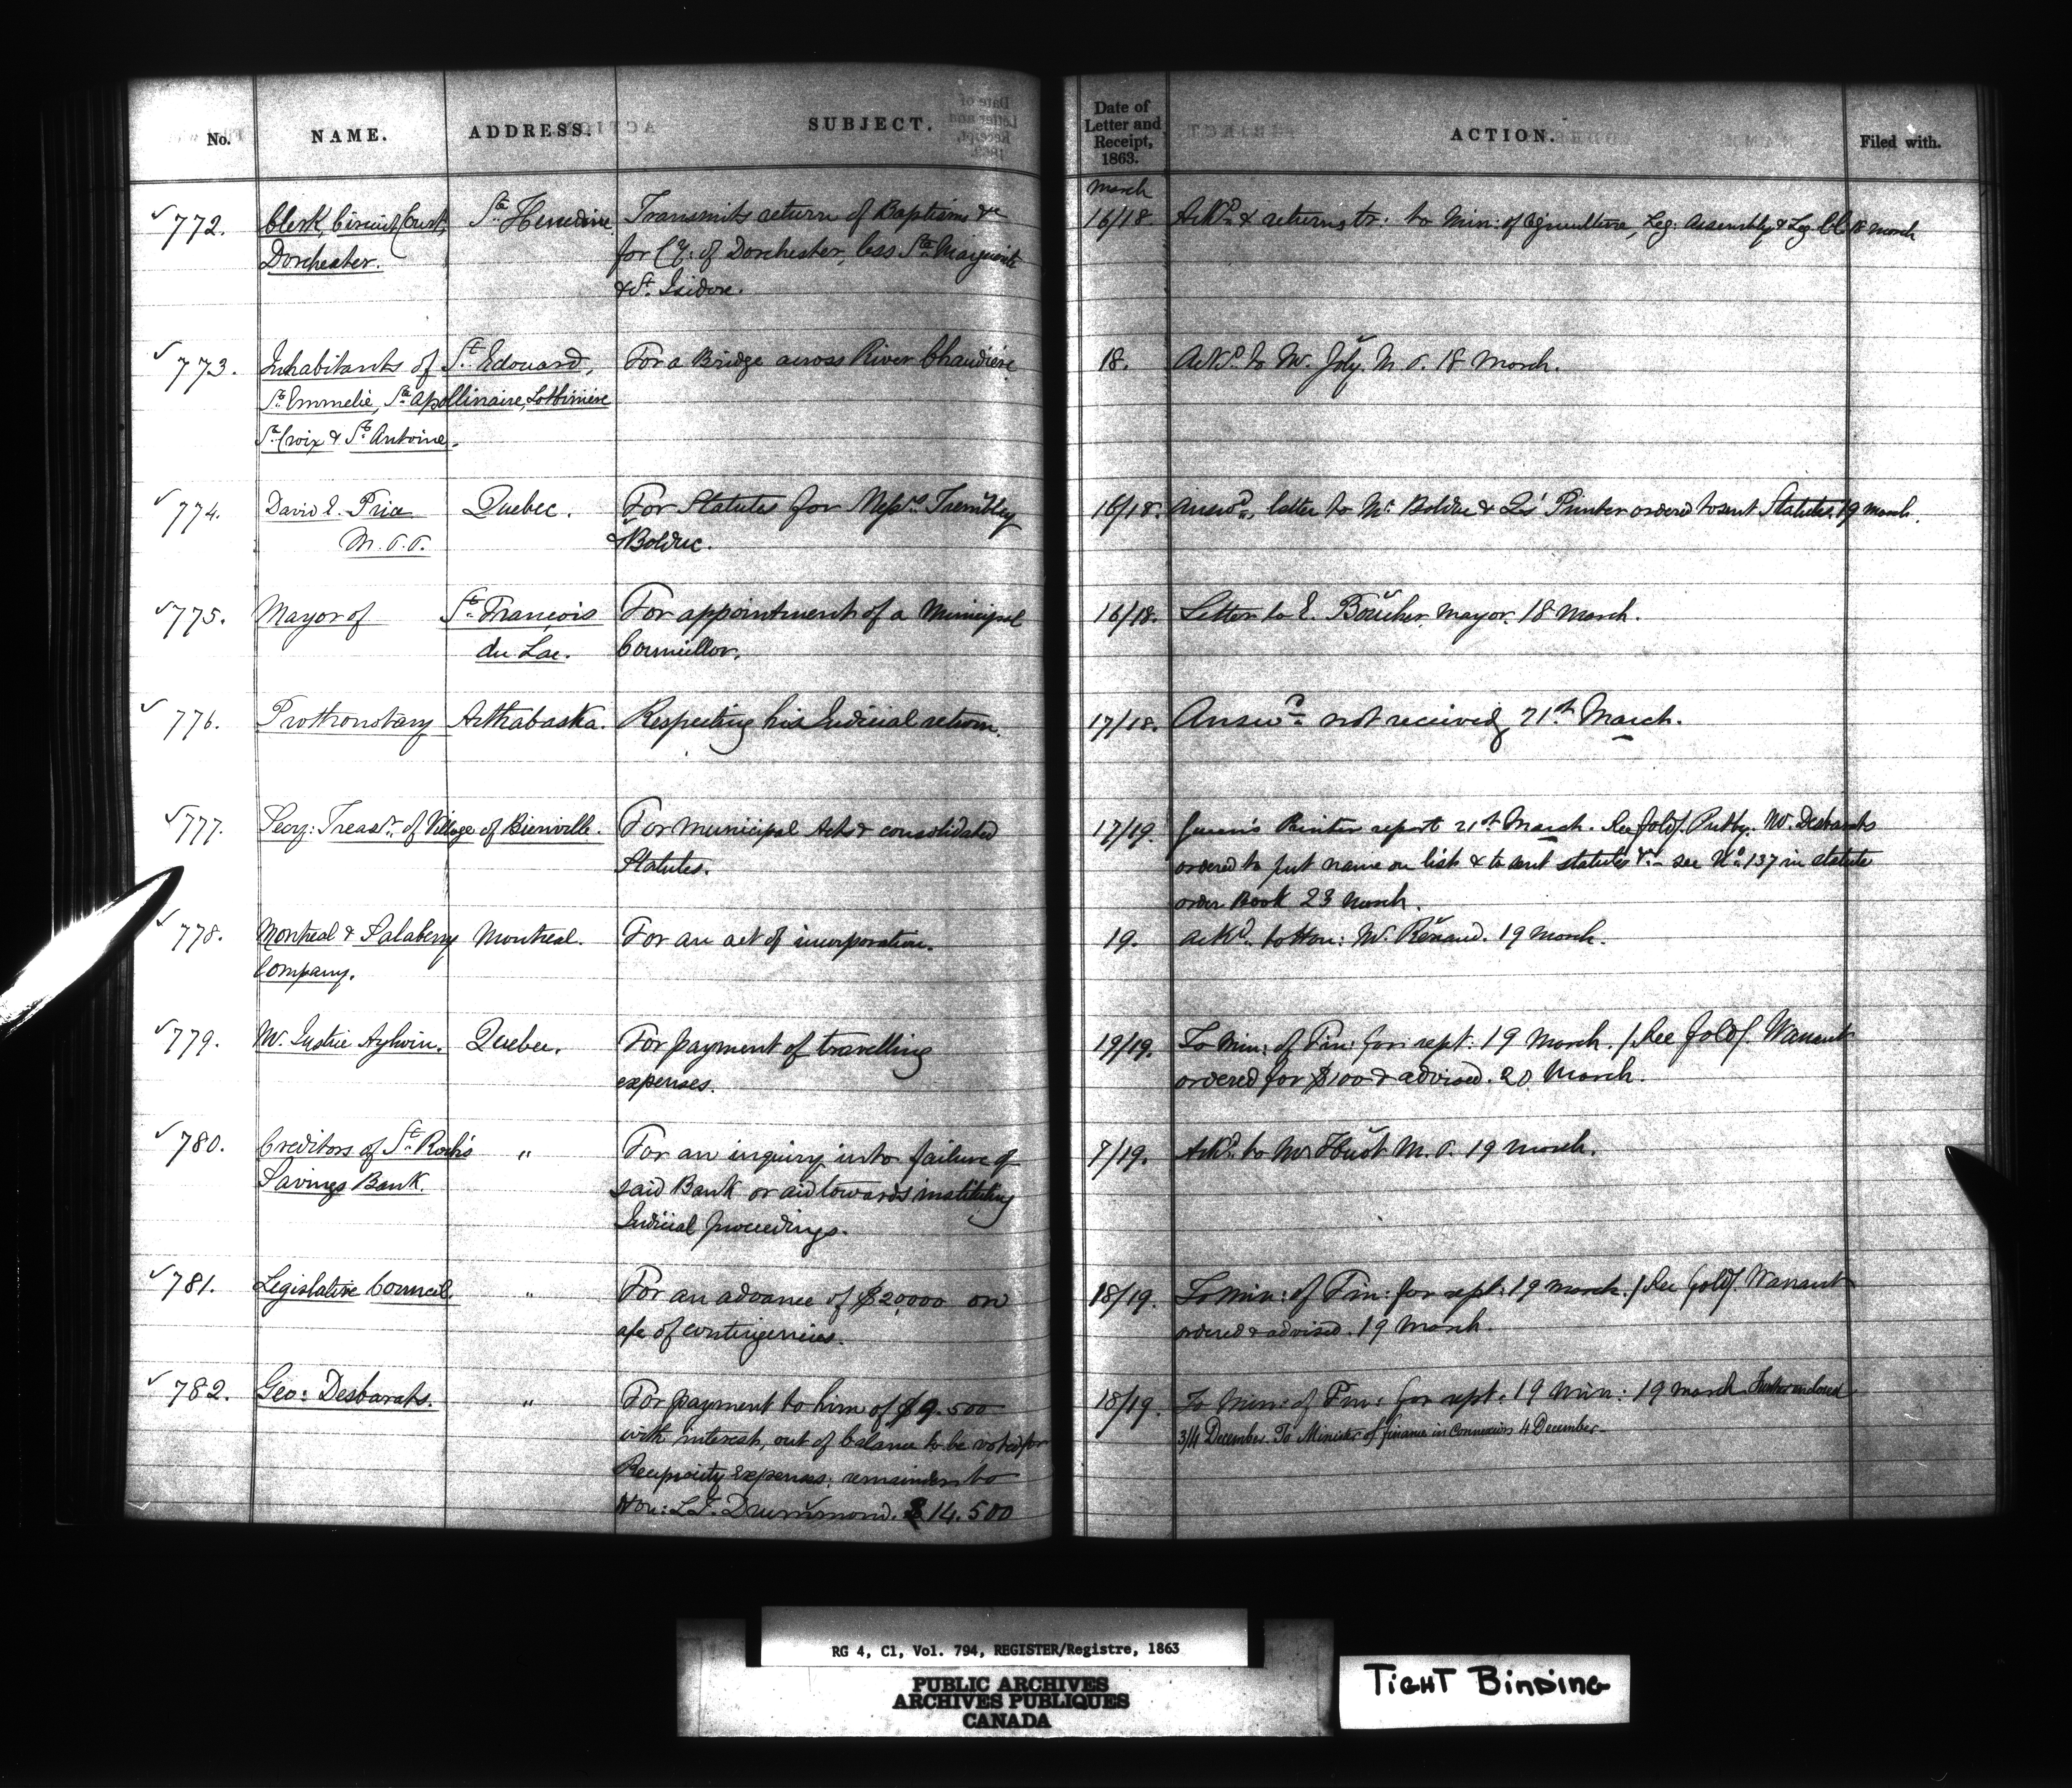 No. NAME. ADDRESS. SUBJECT. Date of Letter and Receipt, 1863. ACTION. Filed with.
March
772. Clerk, Circuit Court, Ste Henedine. Transmits return of Baptisms &c 16/18. Ackd & returns tr: to Min: of Agriculture, Leg: Assembly & Leg Cl. 18 March
Dorchester. for Cy: of Dorchester, less Ste Marguerite
& St Isidore.
773. Inhabitants of St Edouard, For a Bridge across River Chaudière 18. Ackd to Mr. Joly M.P. 18 March.
Ste Emmelie, St Apollinaire, Lotbinière
Ste Croix & St Antoine.
774. David E. Price Quebec. For Statutes for Messrs Tremblay 16/18. Answd, letter to Mr Bolduc & Qs' Printer ordered to sent Statutes, 19 March.
M.P.P. & Bolduc.
775. Mayor of St Francois For appointment of a Municipal 16/18. Letter to E. Boucher, Mayor, 18 March.
du Lac. Councillor.
776. Prothonotary Arthabaska. Respecting his Judicial return. 17/18. Answd not received, 21st March.
777. Secy: Treasr of Village of Bienville. For Municipal Acts & consolidated 17/19. Queen's Printer report 21st March. See fold/. Mr. Desbarats
Statutes. ordered to put name on list & to sent statutes &c - see No 137 in statute
order Book 23 March.
778. Montreal & Salaberry Montreal. For an act of incorporation. 19. Ackd to Hon: Mr. Renaud. 19 March.
Company.
779. Mr. Justice Aylwin. Quebec. For payment of travelling 19/19. To Min: of Fin: for rept: 19 March. / See fold/. Warrant
expenses. ordered for $100 & advised. 20 March.
780. Creditors of St Roch's " For an inquiry into failure of 7/19. Ackd to Mr Huot M.P. 19 March.
Savings Bank. said Bank or aid towards instituting
Judicial proceedings.
781. Legislative Council. " For an advance of $20,000 on 18/19. To Min: of Fin: for rept: 19 March. / See fold/. Warrant
a/c of contingencies. ordered & advised. 19 March.
782. Geo: Desbarats. " For payment to him of $9.500 18/19. To Min: of Fin: for rept: 19 Min: 19 March Further enclosed
with interest, out of balance to be voted for 3/4 December. To Minister of finance in connexion 4 December
Reciprocity Expenses: remainder to
Hon: L.T. Drummond. $14.500
RG 4, C1, Vol. 794, REGISTER/Registre, 1863
PUBLIC ARCHIVES
ARCHIVES PUBLIQUES
CANADA
TIGHT BINDING